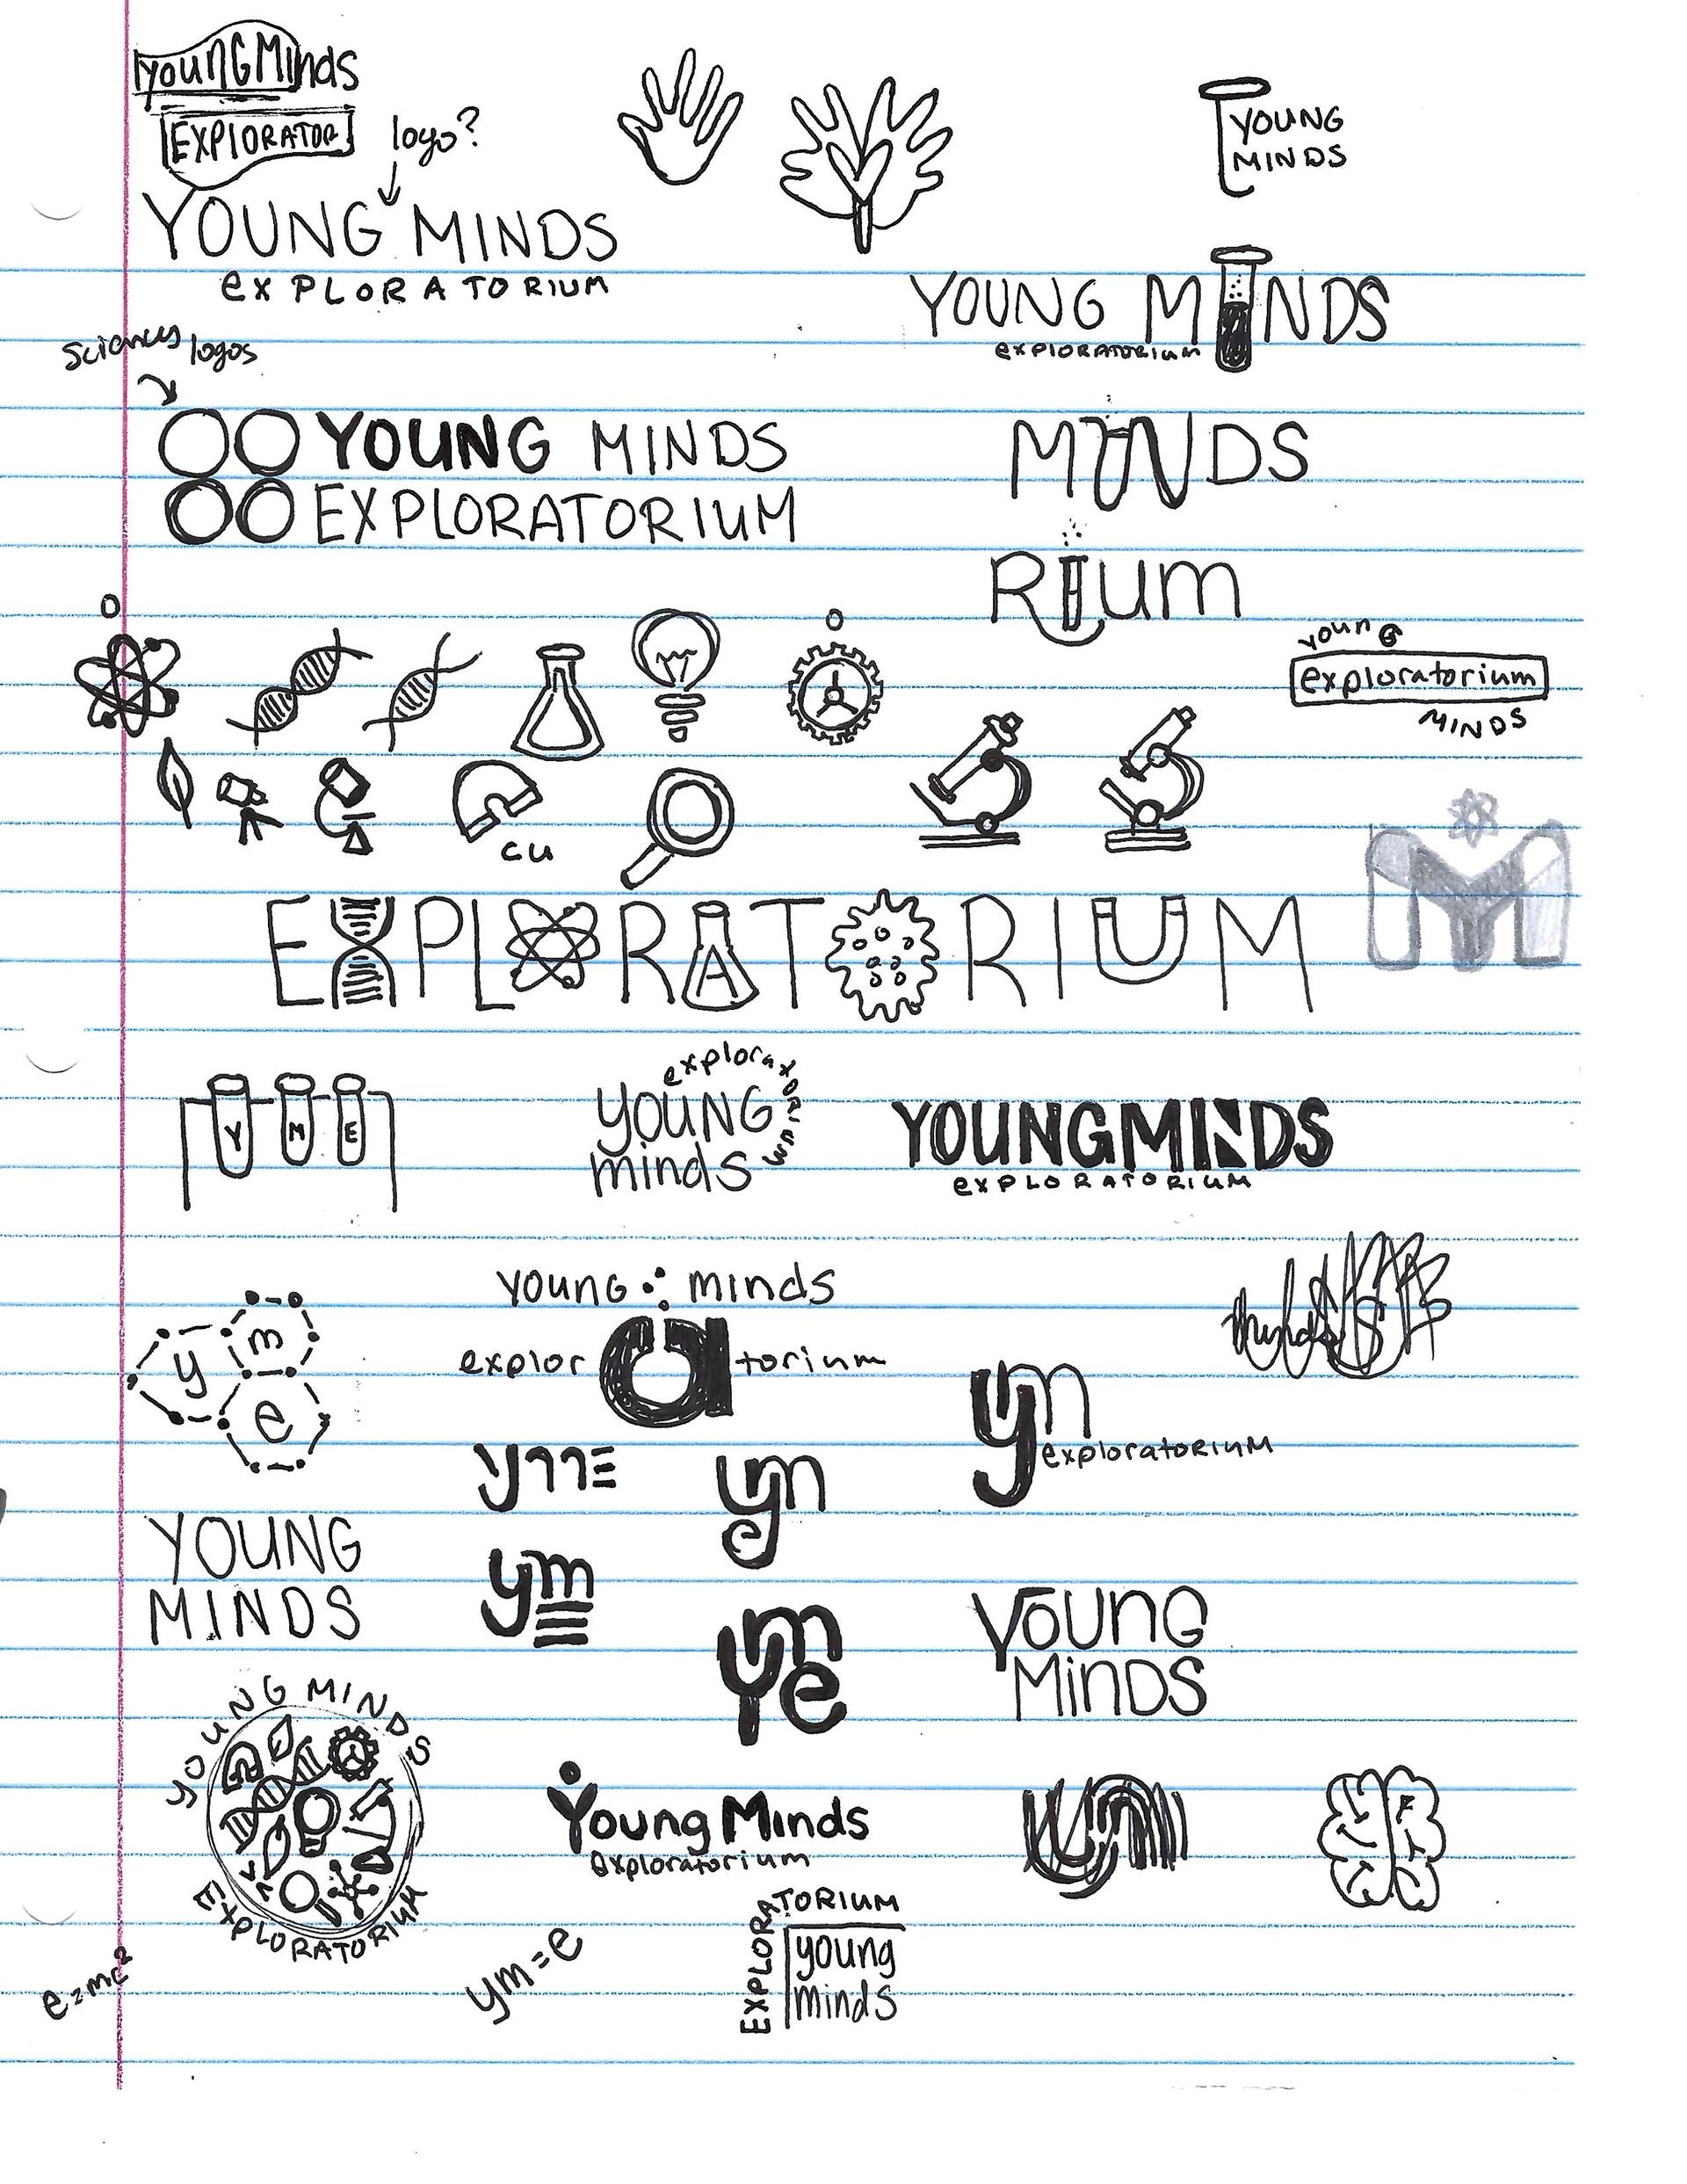 younGMinds
EXPlORATOR
logo?
YOUNG MINDS
exPLORATORIUM
YOUNG
MINDS
YOUNG MINDS
exPlORATORIum
Sciences logos
YOUNG MINDS
EXPLORATORIUM
MINDS
RIum
O
O
younG
exploratorium
MINDS
cu
YM
EXPLORATORIUM
Y M E
explorатоrium
younG
minds
YOUNGMINDS
exPLORATORIUM
younG minds
explor a torium
y m
e
ym
exploratoRIUM
yme
yme
YOUNG
MINDS
yme
yme
YounG
MinDS
YOUNG MINDS
EXPLORATORIUM
Young Minds
exploratorium
ym
EXPLORATORIUM
young
minds
ym=e
e=mc²